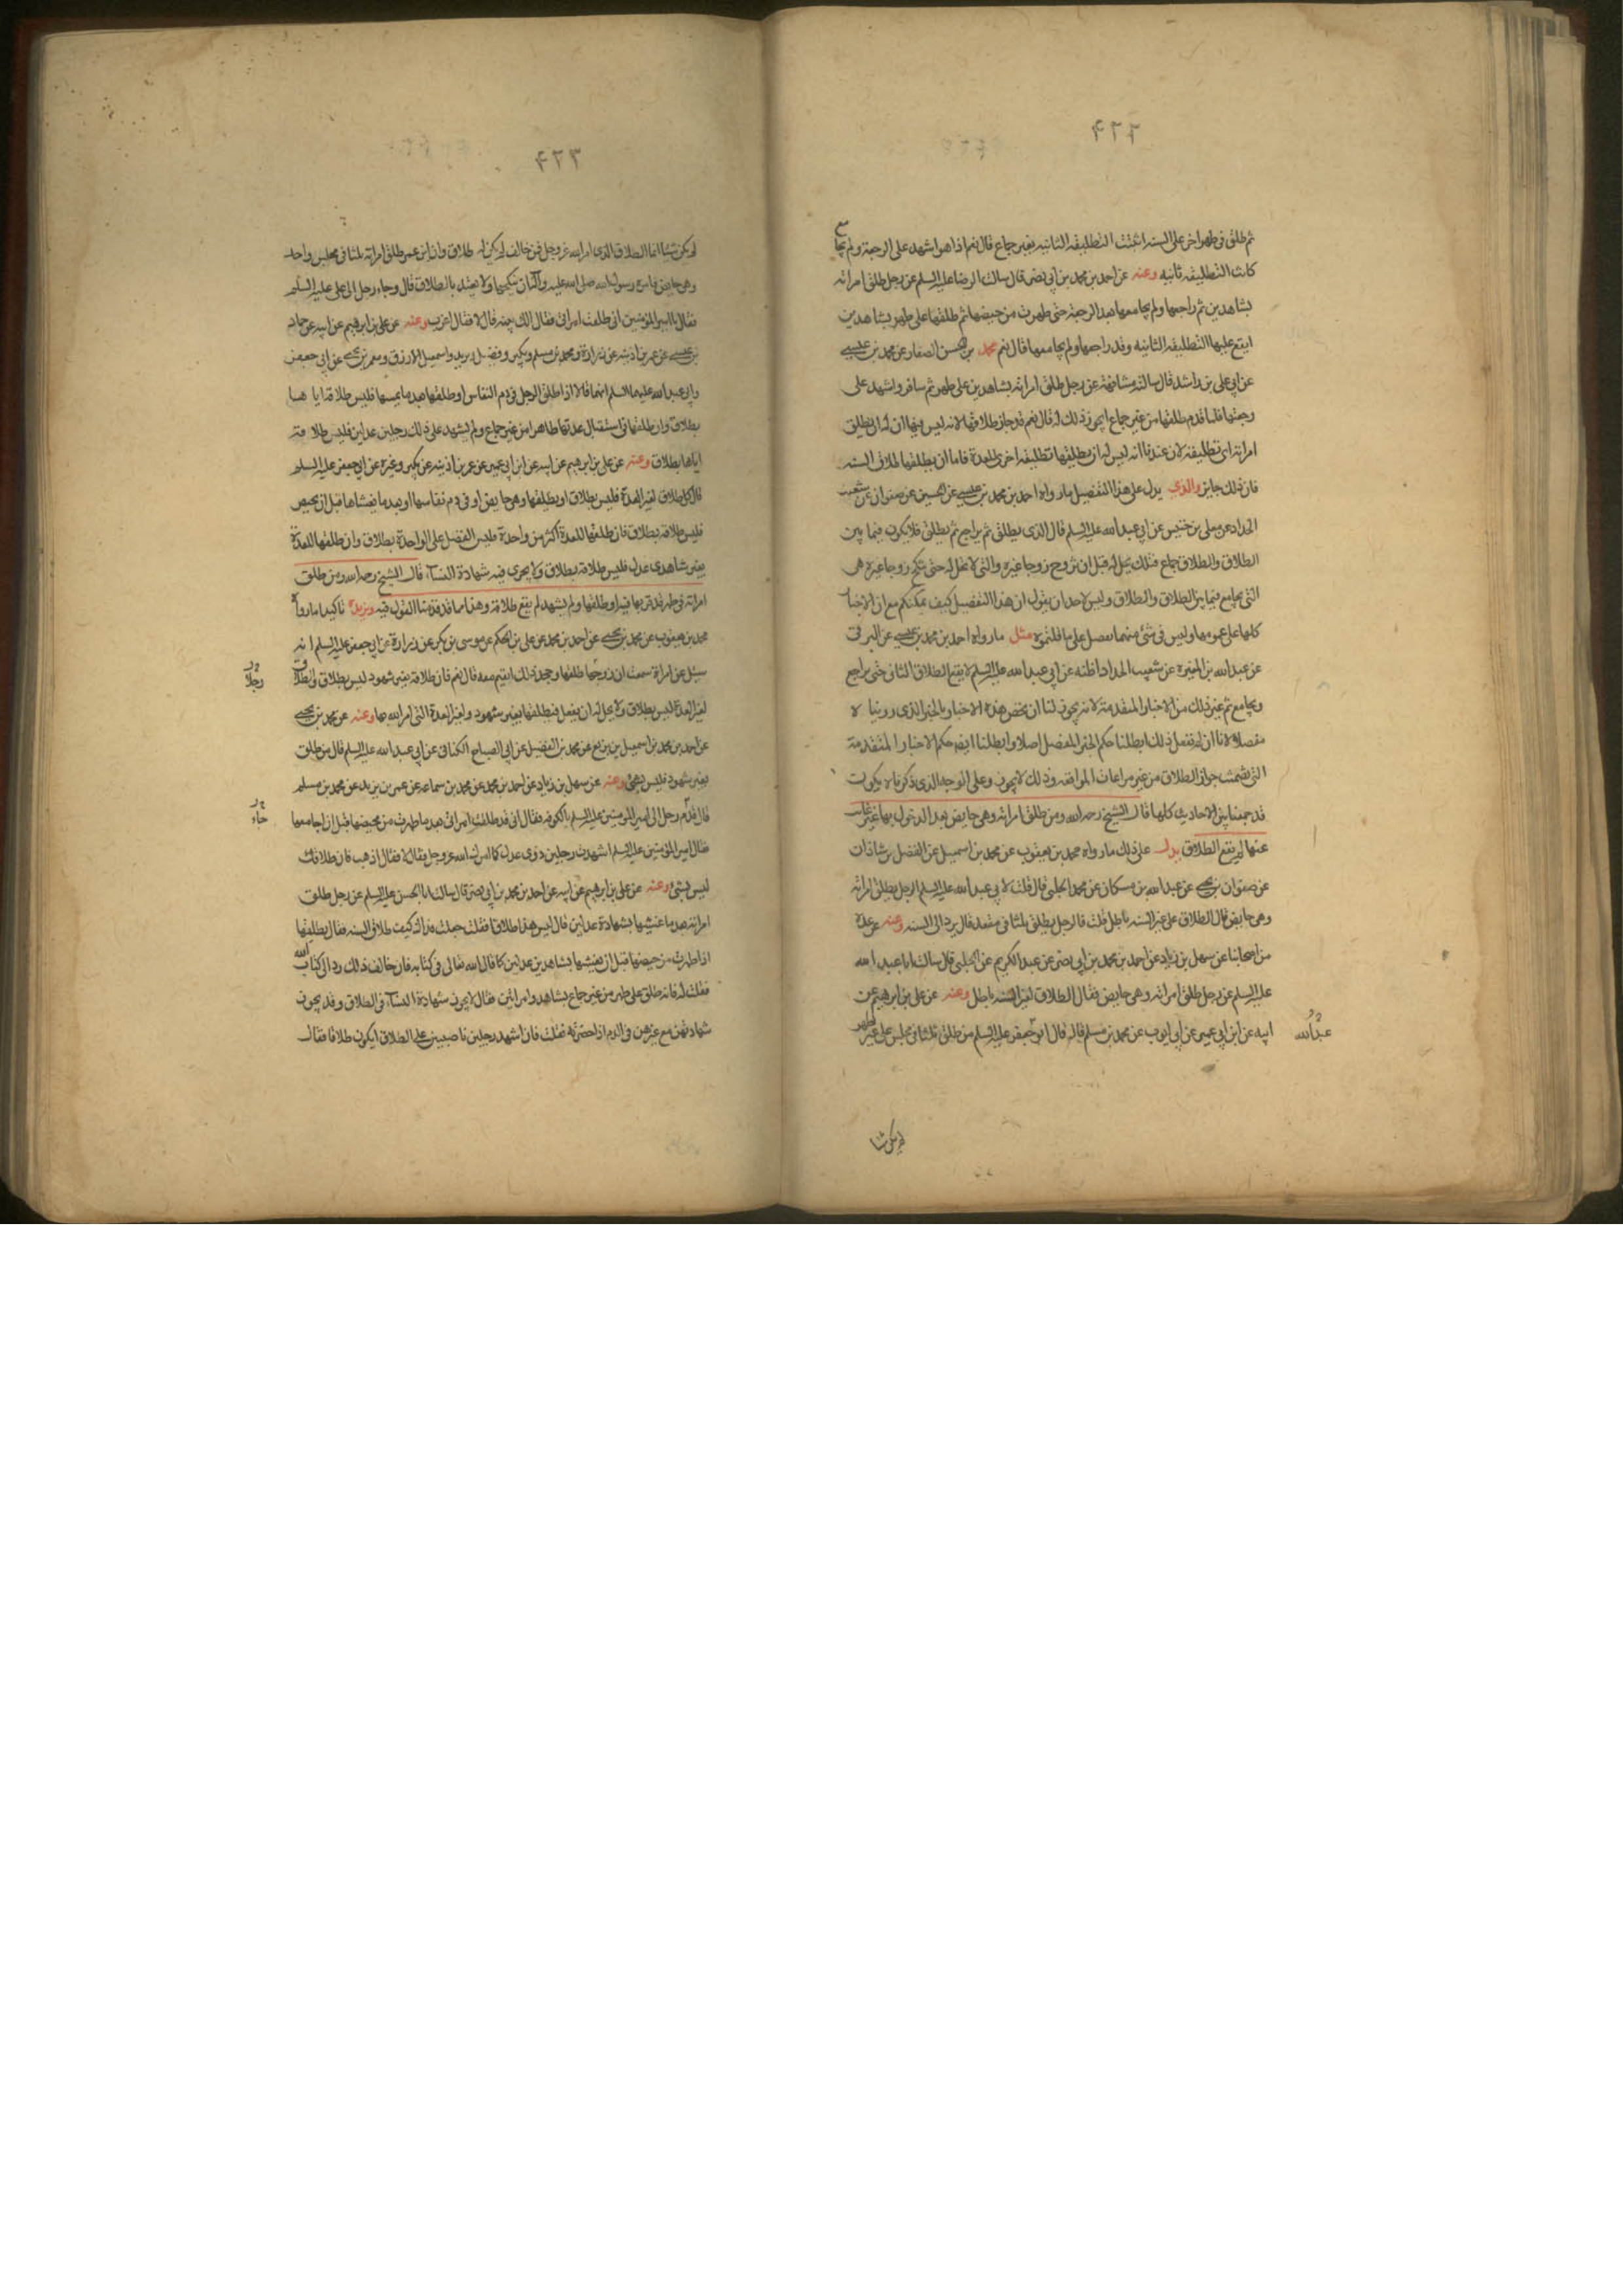 ثم طلق فى طهر اخر على السنة اتثبت التطليقة الثانية بغير جماع قال نعم اذا هو اشهد على الرجعة ولم يجامع
كانت التطليقة ثانيه وعنه عن احمد بن محمد بن ابى نصر قال سالت الرضا عليه السلم عن رجل طلق امراته
بشاهدين ثم راجعها ولم يجامعها بعد الرجعة حتى طهرت من حيضها ثم طلقها على طهر بشاهدين
ايقع عليها التطليقة الثانيه وقد راجعها ولم يجامعها قال نعم محمد بن الحسن الصفار عن محمد بن عيسى
عن ابى على بن راشد قال سالته مشافهة عن رجل طلق امراته بشاهدين على طهر ثم سافر واشهد على
رجعتها فلما قدم طلقها من غير جماع ايجوز ذلك له قال نعم قد جاز طلاقها لانه ليس فيها ان له ان يطلق
امراته اى تطليقة لان عندنا انه ليس له ان يطلقها تطليقة اخرى للعدة فاما ان يطلقها طلاق السنة
فان ذلك جايز والذى يدل على هذا التفصيل ما رواه احمد بن محمد بن عيسى عن الحسين عن صفوان عن شعيب
الحداد عن معلى بن خنيس عن ابى عبد الله عليه السلم قال الذى يطلق ثم يراجع ثم يطلق فلا يكون فيما بين
الطلاق والطلاق جماع فتلك تحل له قبل ان تزوج زوجا غيره والتى لا تحل له حتى تنكح زوجا غيره هى
التى يجامع فيما بين الطلاق والطلاق وليس لاحد ان يقول ان هذا التفصيل كيف يمكنكم مع ان الاخبار
كلها على عمومها وليس فى شئ منها تفصل على ما قلتموه مثل ما رواه احمد بن محمد بن عيسى عن البرقى
عن عبد الله بن المغيرة عن شعيب الحداد اظنه عن ابى عبد الله عليه السلم لا يقع الطلاق الثانى حتى يراجع
ويجامع ثم غير ذلك من الاخبار المتقدمة لانه يجوز لنا ان نخص هذه الاخبار بالخبر الذى روينا لا
مفصلا لانا ان لم نفعل ذلك ابطلنا حكم الخبر المفصل اصلا وابطلنا ايضا حكم الاخبار المتقدمة
التى تضمنت جواز الطلاق من غير مراعات المواقعه وذلك لا يجوز وعلى الوجه الذى ذكرناه لا يكون
قد جمعنا بين الاحاديث كلها قال الشيخ رحمه الله ومن طلق امراته وهى حايض بعد الدخول بها غير غايب
عنها لم يقع الطلاق يدل على ذلك ما رواه محمد بن يعقوب عن محمد بن اسمعيل عن الفضل بن شاذان
عن صفوان بن يحيى عن عبد الله بن مسكان عن محمد الحلبى قال قلت لابى عبد الله عليه السلم الرجل يطلق امراته
وهى حايض قال الطلاق على غير السنة باطل قلت فالرجل يطلق ثلثا فى مقعد قال يرد الى السنة وعنه عن عدة
من اصحابنا عن سهل بن زياد عن احمد بن محمد بن ابى نصر عن عبد الكريم عن الحلبى قال سالت ابا عبد الله
عليه السلم عن رجل طلق امراته وهى حايض فقال الطلاق لغير السنة باطل وعنه عن على بن ابرهيم عن
ابيه عن ابن ابى عمير عن ابى ايوب عن محمد بن مسلم قال قال ابو جعفر عليه السلم من طلق ثلثا فى مجلس على غير طهر
عبد الله
لم يكن شيئا
لم يكن شيئا انما الطلاق الذى امر الله عز وجل فمن خالف لم يكن له طلاق وان ابن عمر طلق امراته ثلثا فى مجلس واحد
وهى حايض فامره رسول الله صلى الله عليه وآله ان ينكحها ولا يعتد بالطلاق قال وجاء رجل الى على عليه السلم
فقال يا امير المؤمنين انى طلقت امراتى فقال الك بينه قال لا فقال اعزب وعنه عن على بن ابرهيم عن ابيه عن حماد
بن عيسى عن عمر بن اذينه عن زرارة ومحمد بن مسلم وبكير وفضيل وبريد واسمعيل الازرق ومعمر بن يحيى عن ابى جعفر
وابى عبد الله عليهما السلم انهما قالا اذا طلق الرجل فى دم النفاس او طلقها بعد ما يمسها فليس طلاقه اياها
بطلاق وان طلقها فى استقبال عدتها طاهرا من غير جماع ولم يشهد على ذلك رجلين عدلين فليس طلاقه
اياها بطلاق وعنه عن على بن ابرهيم عن ابيه عن ابن ابى عمير عن عمر بن اذينه عن بكير وغيره عن ابى جعفر عليه السلم
قال كل طلاق لغير العدة فليس بطلاق او يطلقها وهى حايض او فى دم نفاسها او بعد ما يغشاها قبل ان تحيض
فليس طلاقه بطلاق فان طلقها للعدة اكثر من واحدة فليس الفضل على الواحدة بطلاق وان طلقها للعدة
بغير شاهدى عدل فليس طلاقه بطلاق ولا يجزى فيه شهادة النسآء قال الشيخ رحمه الله ومن طلق
امراته فى طهر قد قربها فيه او طلقها ولم يشهد لم يقع طلاقه وهذا مما قد قدمنا القول فيه ويزيده تاكيدا ما رواه
محمد بن يعقوب عن محمد بن يحيى عن احمد بن محمد عن على بن الحكم عن موسى بن بكر عن زرارة عن ابى جعفر عليه السلم انه
سئل عن امراة سمعت ان زوجها طلقها وجحد ذلك اتقيم معه قال نعم فان طلاقه بغير شهود ليس بطلاق والطلاق
لغير العدة ليس بطلاق ولا يحل له ان يفعل فيطلقها بغير شهود ولغير العدة التى امر الله بها وعنه عن محمد بن يحيى
عن احمد بن محمد بن اسمعيل بن بزيع عن محمد بن الفضيل عن ابى الصباح الكنانى عن ابى عبد الله عليه السلم قال من طلق
بغير شهود فليس بشئ وعنه عن سهل بن زياد عن احمد بن محمد عن محمد بن سماعه عن عمر بن يزيد عن محمد بن مسلم
قال قدم رجل الى امير المؤمنين عليه السلم بالكوفه فقال انى قد طلقت امراتى بعد ما طهرت من محيضها قبل ان اجامعها
فقال امير المؤمنين عليه السلم اشهدت رجلين ذوى عدل كما امرك الله عز وجل فقال لا فقال اذهب فان طلاقك
ليس بشئ وعنه عن على بن ابرهيم عن ابيه عن احمد بن محمد بن ابى نصر قال سالت ابا الحسن عليه السلم عن رجل طلق
امراته بعد ما غشيها بشهادة عدلين قال ليس هذا طلاقا فقلت جعلت فداك كيف طلاق السنة فقال يطلقها
اذا طهرت من حيضها قبل ان يغشيها بشاهدين عدلين كما قال الله تعالى فى كتابه فان خالف ذلك رد الى كتاب الله
فقلت له فانه طلق على طهر من غير جماع بشاهد وامراتين فقال لا يجوز شهادة النسآء فى الطلاق وقد يجوز
شهادتهن مع غيرهن فى الدم اذا حضرته فقلت فان اشهد رجلين ناصبيين على الطلاق ايكون طلاقا فقال